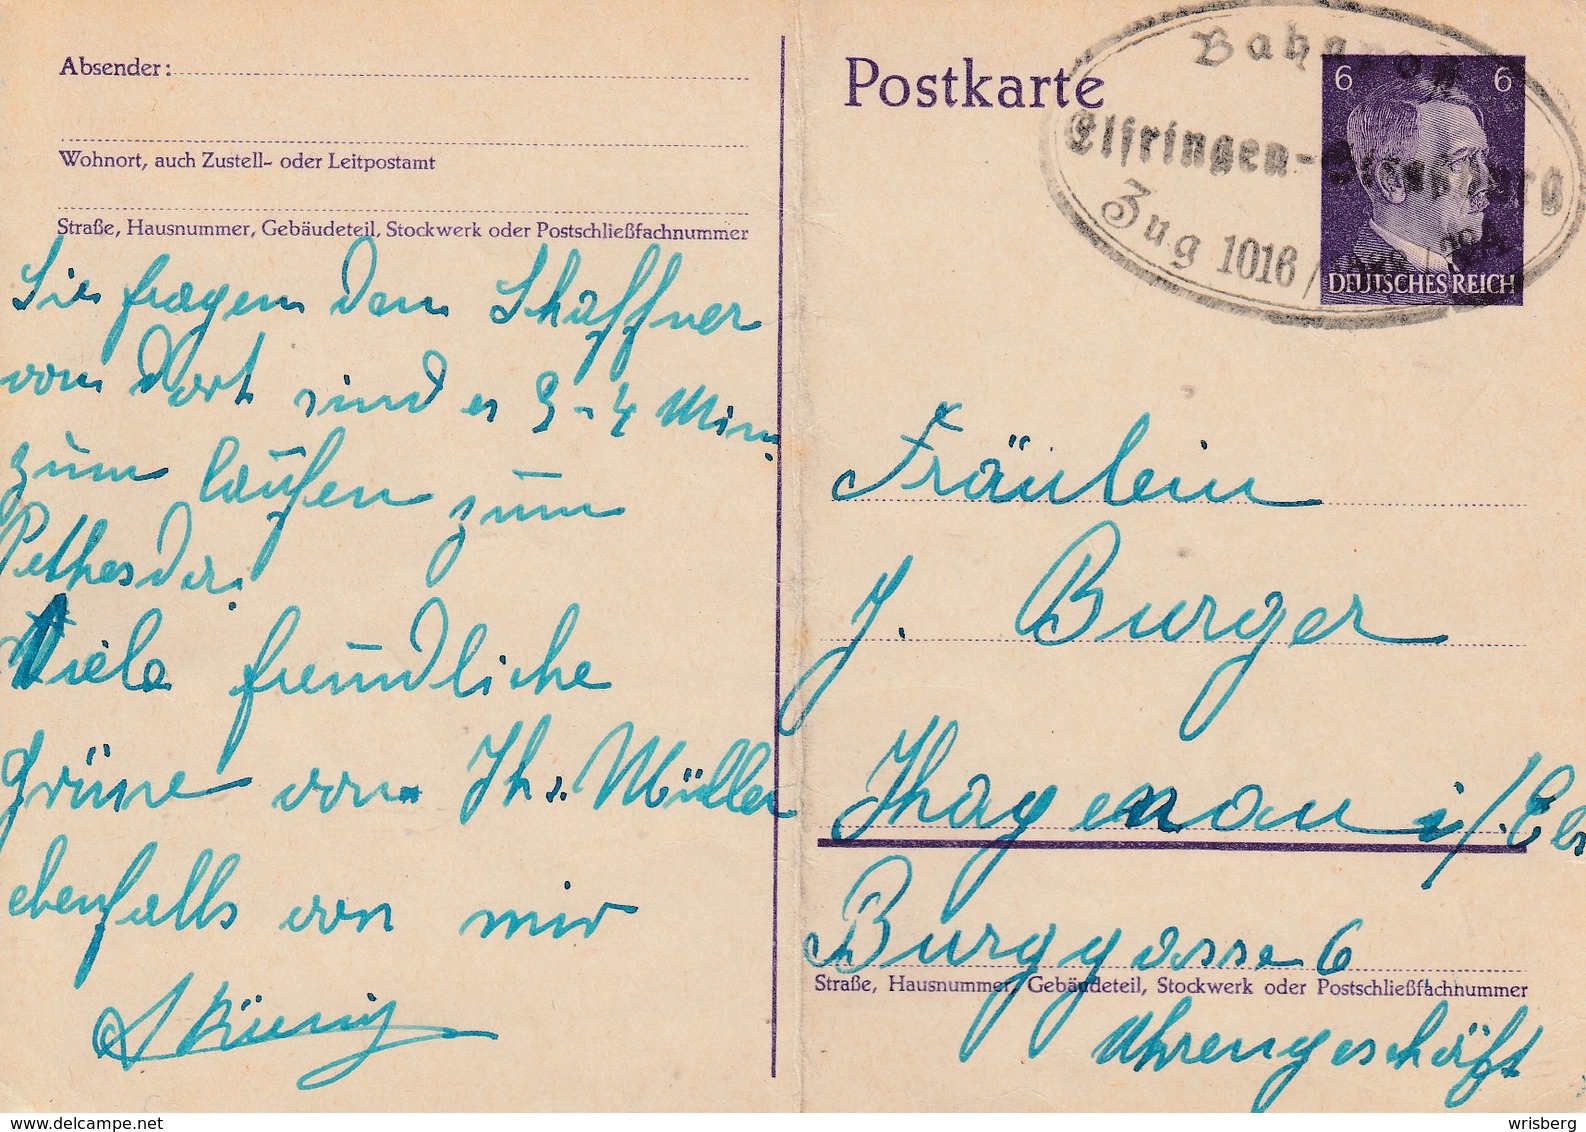 Absender:
Wohnort, auch Zustell- oder Leitpostamt
Straße, Hausnummer, Gebäudeteil, Stockwerk oder Postschließfachnummer
Sie fragen den Schaffner
von dort sind es 3-4 Min
zum laufen zum
Viele freundliche
Grüsse von Th. Müller
ebenfalls von mir
Postkarte
Bahnpost
Elfringen-Straßburg
Zug 1016
6 6
DEUTSCHES REICH
Fräulein
J. Burger
Hagenau i/Els
Burggasse 6
Straße, Hausnummer, Gebäudeteil, Stockwerk oder Postschließfachnummer
Uhrengeschäft
delcampe.net
wrisberg